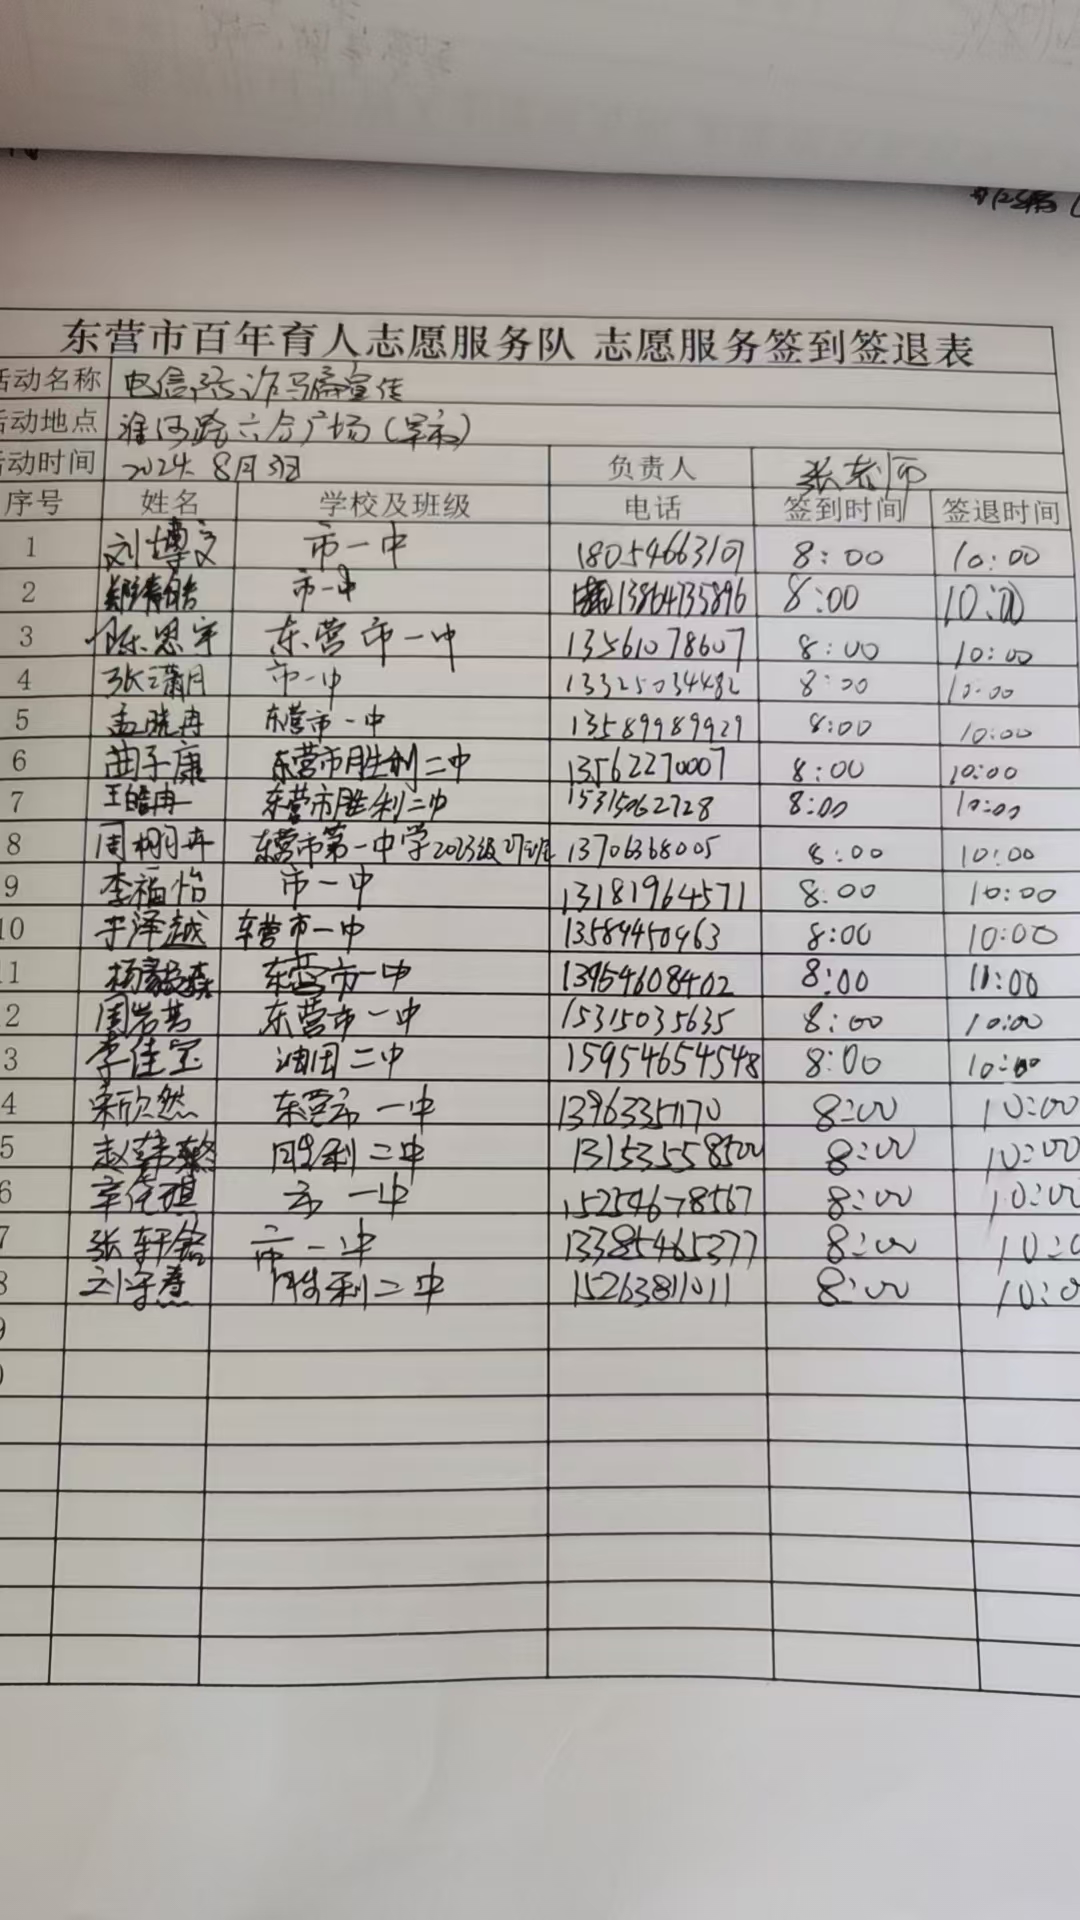 东营市百年育人志愿服务队 志愿服务签到签退表
活动名称 电信防诈骗宣传
活动地点 淮河路六合广场(早市)
活动时间 2024. 8月3日 负责人 张老师
序号 姓名 学校及班级 电话 签到时间 签退时间
1 刘博文 市一中 18054663107 8:00 10:00
2 市一中 13864735896 8:00 10:00
3 陈思宇 东营市一中 13561078607 8:00 10:00
4 张潇月 市一中 13325034482 8:00 10:00
5 孟晓冉 东营市一中 13589989929 8:00 10:00
6 曲子康 东营市胜利二中 13562270007 8:00 10:00
7 王皓冉 东营市胜利二中 15315062728 8:00 10:00
8 周栩冉 东营市第一中学2023级 13706368005 8:00 10:00
9 李福怡 市一中 13181964571 8:00 10:00
10 于泽越 东营市一中 13589450963 8:00 10:00
1 东营市一中 13954608402 8:00 10:00
2 周岩芸 东营市一中 15315035635 8:00 10:00
3 李佳宝 油田二中 15954654548 8:00 10:00
4 宋欣然 东营市一中 13963351170 8:00 10:00
5 胜利二中 13153558500 8:00 10:00
6 市一中 15254678567 8:00 10:00
7 张轩铭 市一中 13385465377 8:00 10:0
8 刘宇熹 胜利二中 15263811011 8:00 10:0
9
0